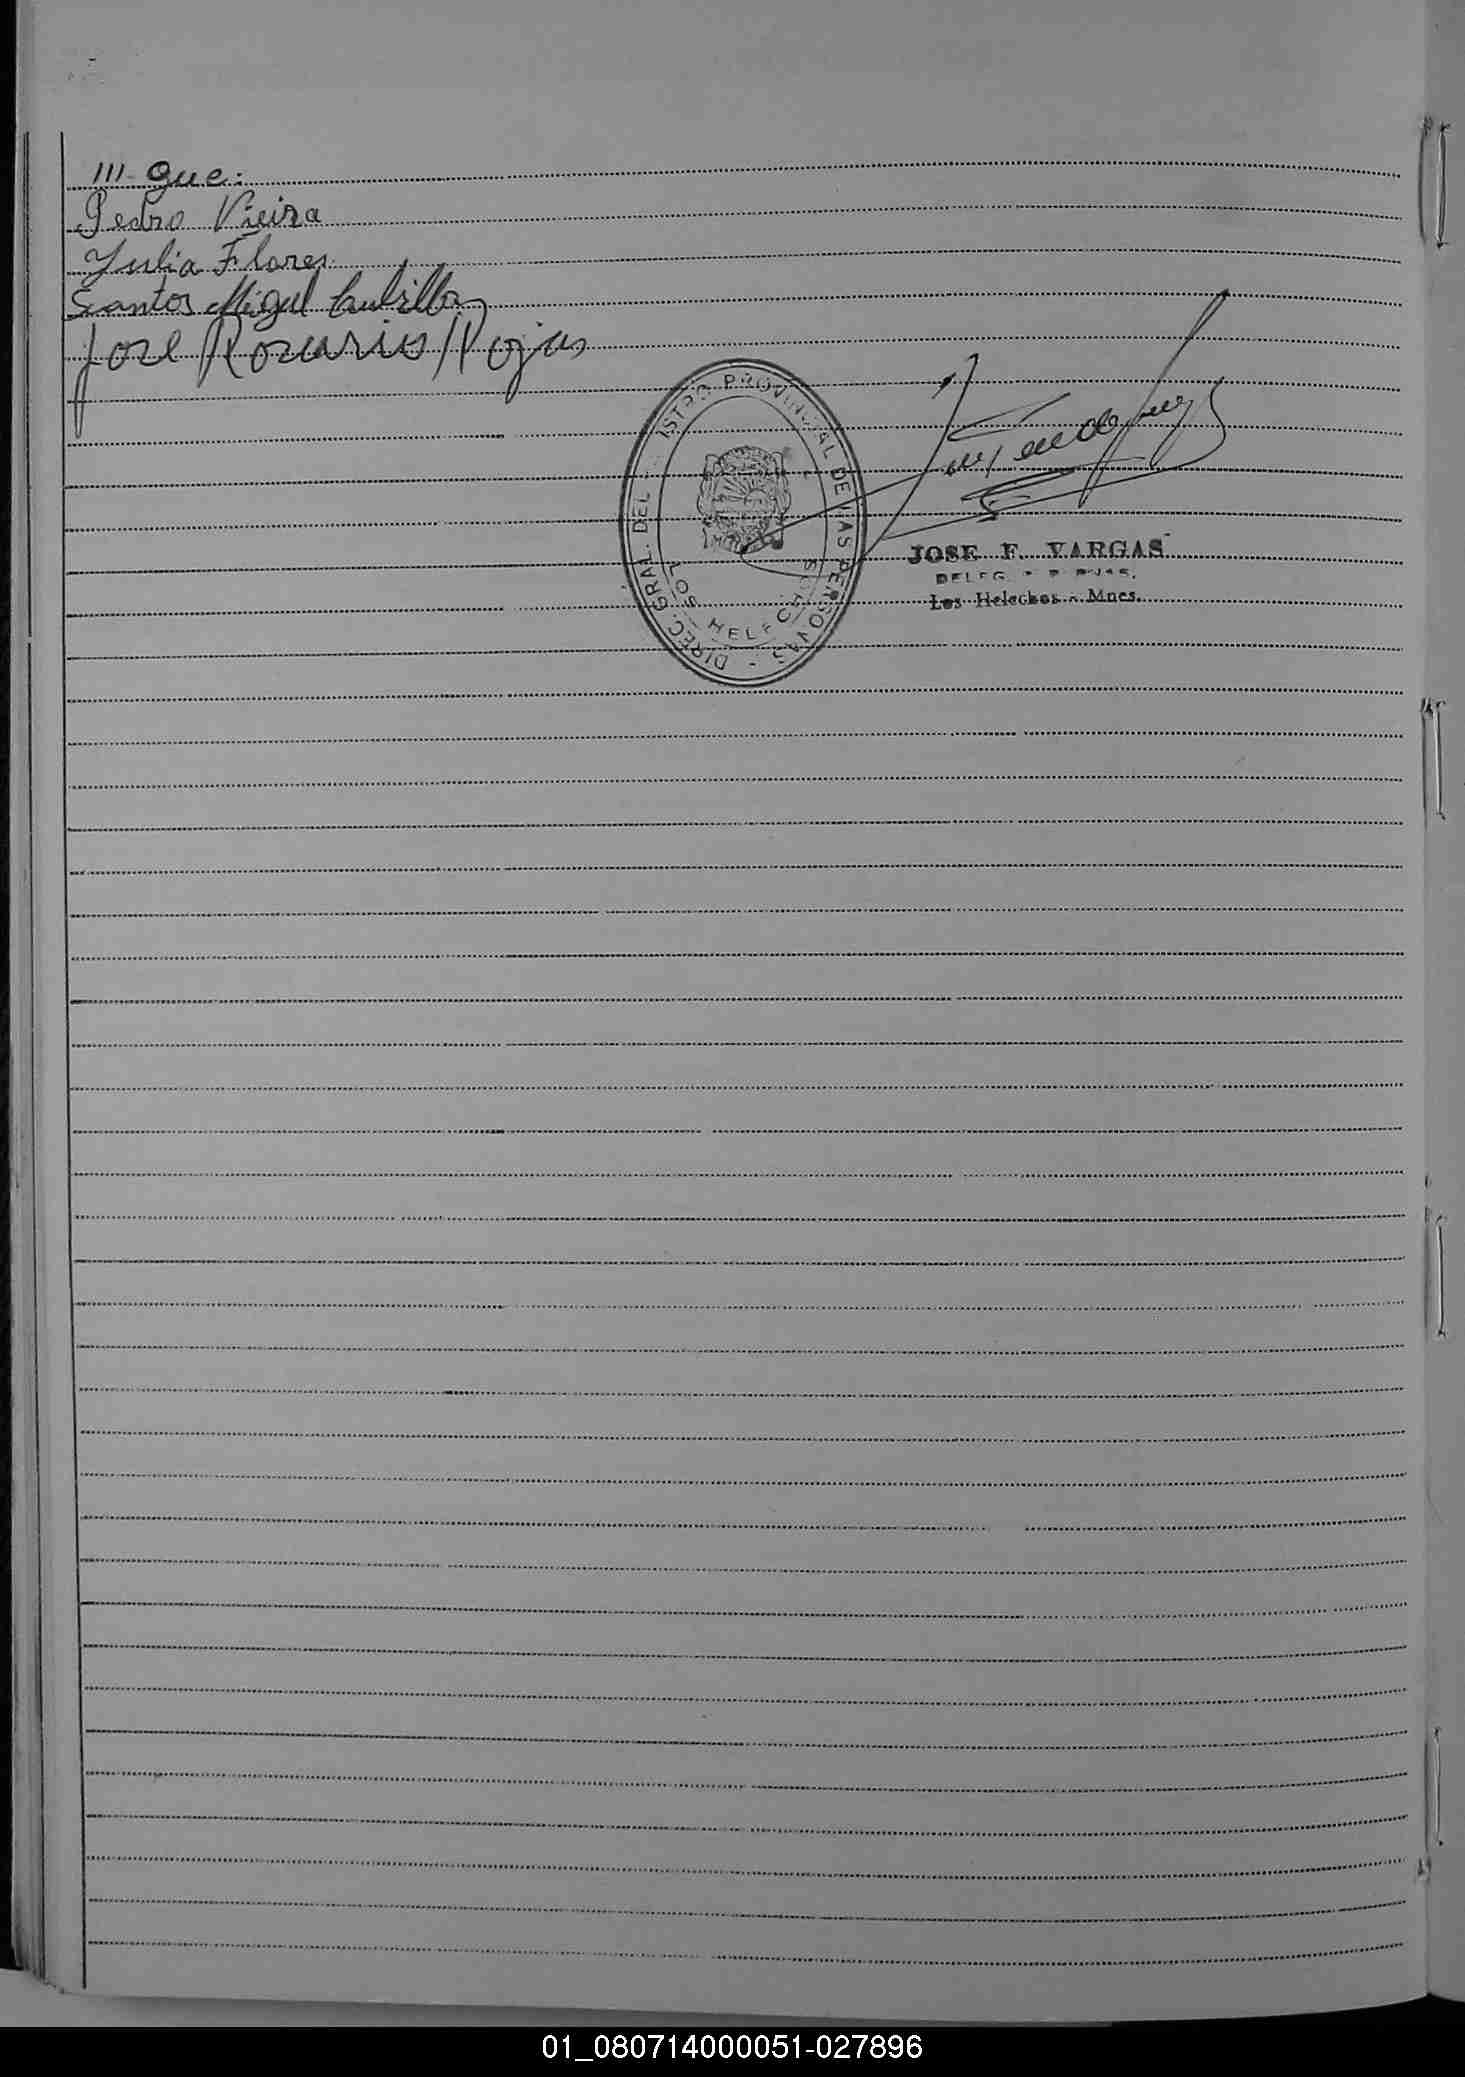 III- que:
Pedro Vieira
Julia Flores
Santos Miguel
Jose Rozario Rojas
DIREC. GRAL. DEL ISTRO PROVINCIAL DE LAS PERSONAS -
LOS HELECHOS
JOSE F. VARGAS
DELEG.
Los Helechos - Mnes.
01_080714000051-027896